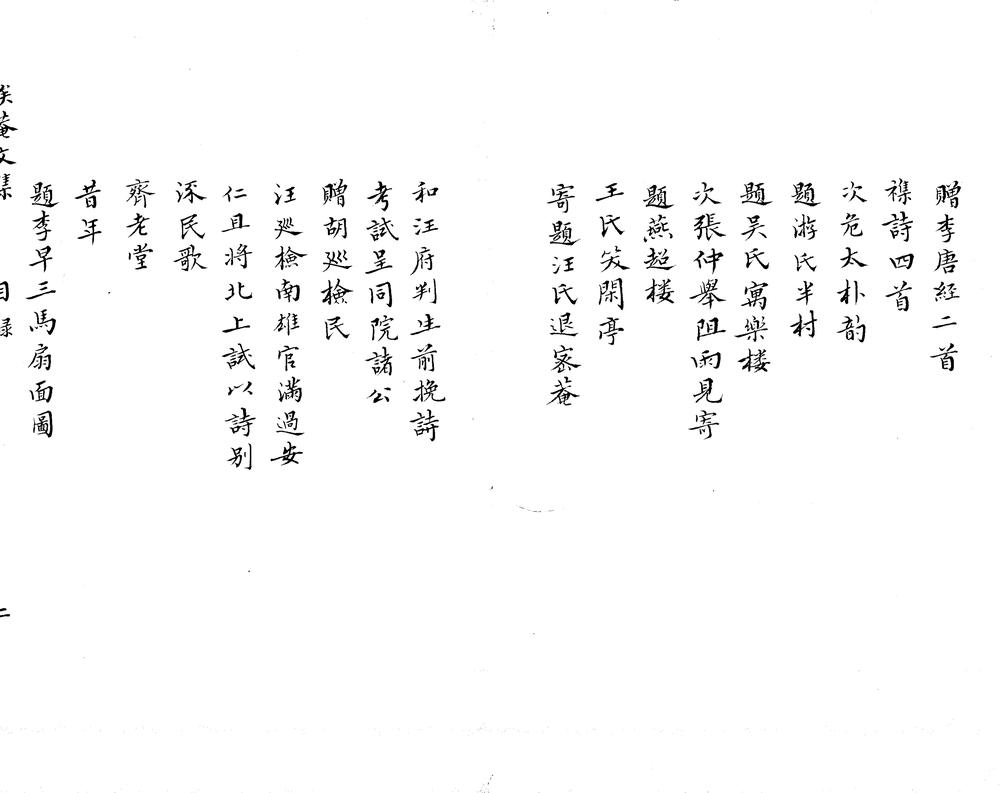 贈李唐経二首
襍詩四首
次危太朴韵
題游氏半村
题吴氏寓樂楼
次張仲舉阻雨見寄
題燕超楼
王氏笑閑亭
寄題汪氏退密菴
和汪府判生前挽詩
考試呈同院諸公
贈胡巡檢民
汪巡檢南雄官滿過安
仁且將北上試以詩别
涿民歌
齊老堂
昔年
題李早三馬扇面圖
俟菴文集
目錄
二